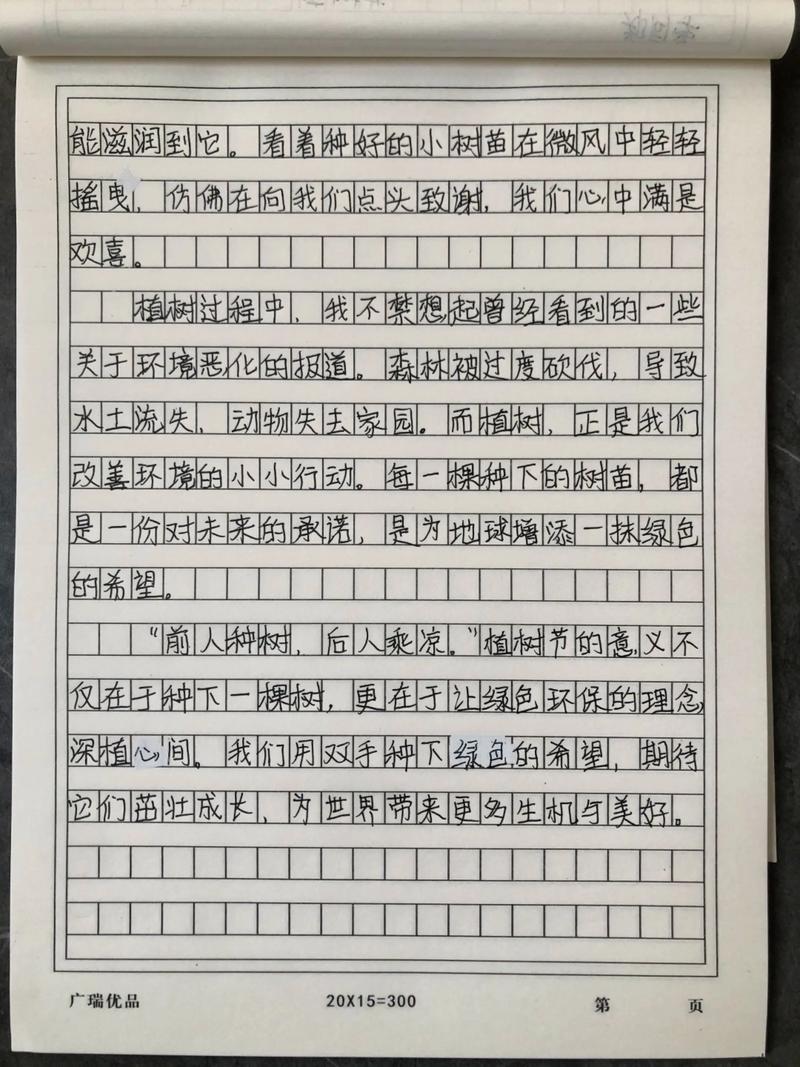 能滋润到它。看着种好的小树苗在微风中轻轻
摇曳，仿佛在向我们点头致谢，我们心中满是
欢喜。
植树过程中，我不禁想起曾经看到的一些
关于环境恶化的报道。森林被过度砍伐，导致
水土流失，动物失去家园。而植树，正是我们
改善环境的小小行动。每一棵种下的树苗，都
是一份对未来的承诺，是为地球增添一抹绿色
的希望。
“前人种树，后人乘凉。”植树节的意义不
仅在于种下一棵树，更在于让绿色环保的理念
深植心间。我们用双手种下绿色的希望，期待
它们茁壮成长，为世界带来更多生机与美好。
广瑞优品 20X15=300 第 页